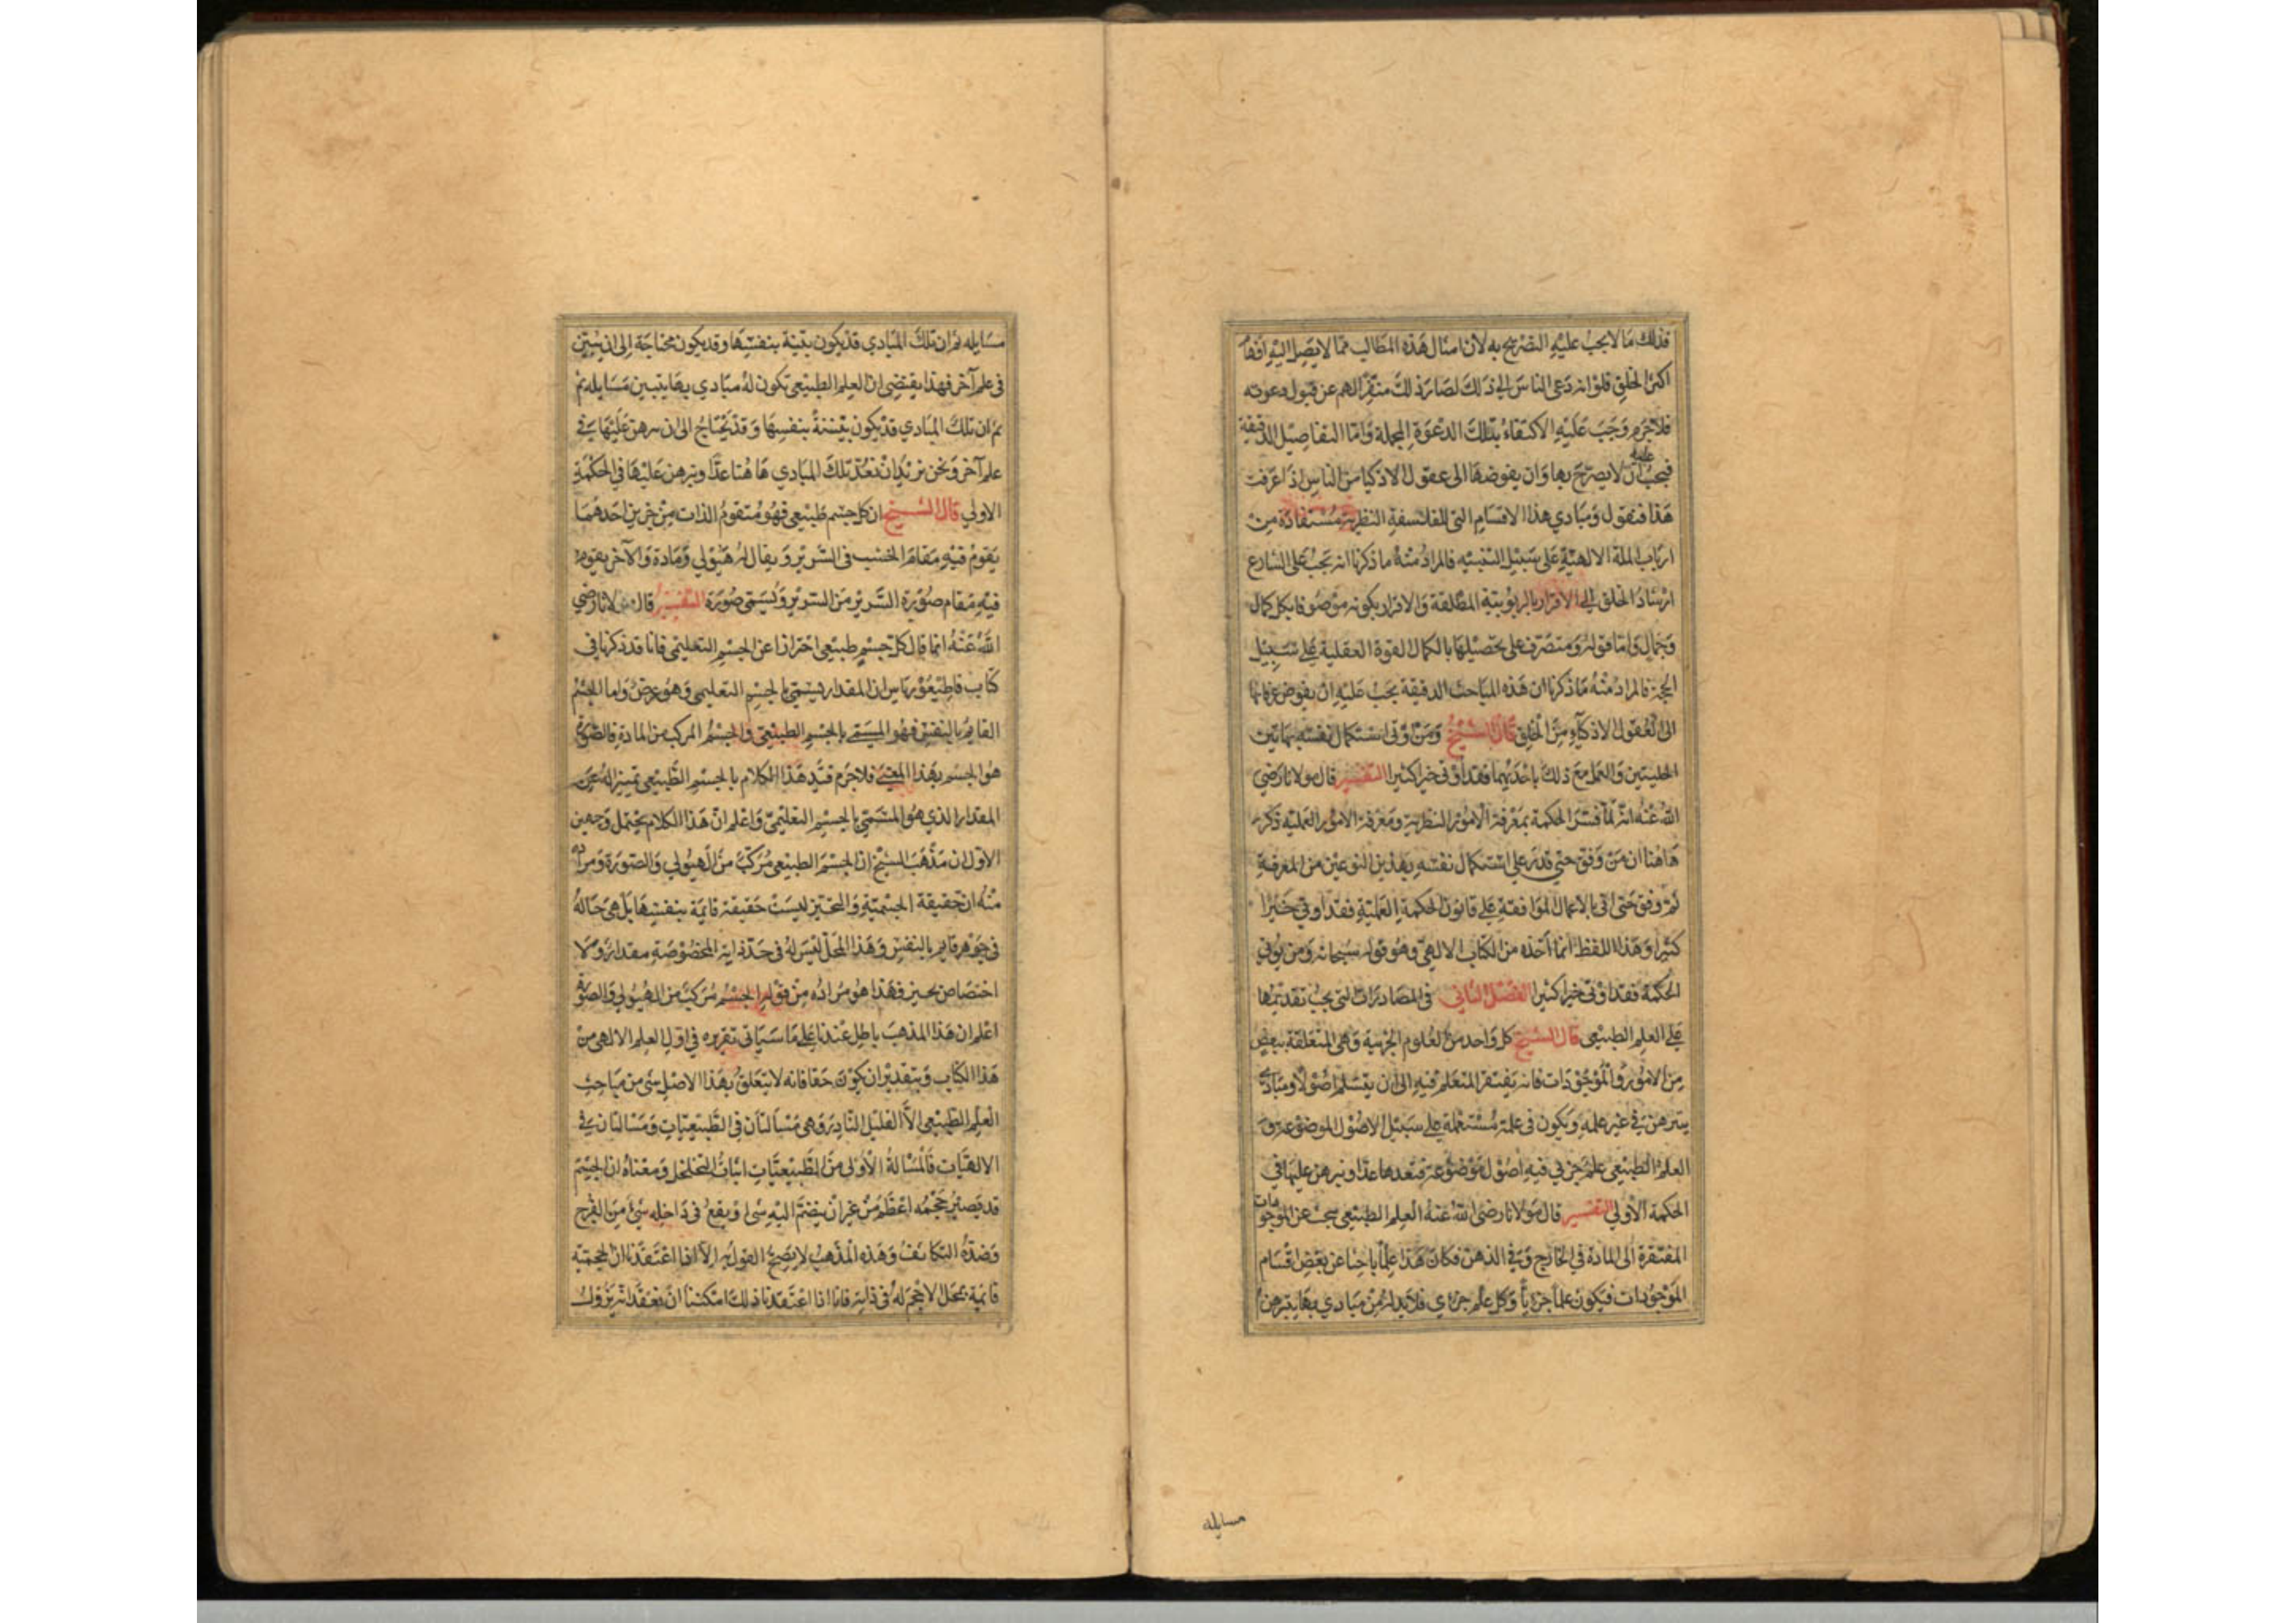 فذلك ما لا يجب عليه التصريح به لان امثال هذه المطالب مما لا يصل اليه افهام
اكثر الخلق فلو انه دعى الناس الى ذلك لصار ذلك منفرا لهم عن قبول دعوته
فلا جرم وجب عليه الاكتفاء بتلك الدعوة المجملة واما التفاصيل الدقيقة
فيجب عليه ان لا يصرح بها وان يفوضها الى عقول الاذكيا من الناس اذا عرفت
هذا فنقول ومبادي هذا الاقسام التى للفلسفة النظرية مستفادة من
ارباب الملة الالهية على سبيل التنبيه فالمراد منه ما ذكرنا انه يجب على الشارع
ارشاد الخلق الى الاقرار بالربوبية المطلقة والاقرار بكونه موصوفا بكل كمال
وجمال واما قوله ومتصرف على تحصيلها بالكمال القوة العقلية على سبيل
الحجة فالمراد منه ما ذكرنا ان هذه المباحث الدقيقة يجب عليه ان يفوض عرفانها
الى العقول الاذكياء من الخلق قال الشيخ ومن اوتى استكمال نفسه بهاتين
الحليتين والعمل مع ذلك باحديهما فقد اوتى خيرا كثيرا التفسير قال مولانا رضي
الله عنه انه لما فسر الحكمة بمعرفة الامور النظرية ومعرفة الامور العملية ذكر
هاهنا ان من وفق حتى قدر على استكمال نفسه بهذين النوعين من المعرفة
ثم وفق حتى اتى بالاعمال الموافقة على قانون الحكمة العملية فقد اوتي خيرا
كثيرا وهذا اللفظ انما اخذه من الكتاب الالهى وهو قوله سبحانه ومن يوتى
الحكمة فقد اوتى خيرا كثيرا الفصل الثاني فى المصادرات التى يجب تقديمها
على العلم الطبيعى قال الشيخ كل واحد من العلوم الجزئية وهى المتعلقة ببعض
من الامور والموجودات فانه يفتقر المتعلم فيه الى ان يتسلم اصولا ومبادي
يتبرهن فى غير علمه ويكون فى علمه مستعملة على سبيل الاصول الموضوعة و
العلم الطبيعى علم جزيى فيه اصول موضوعة فنعدها عدا ونبرهن عليها فى
الحكمة الاولى التفسير قال مولانا رضى الله عنه العلم الطبيعى يبحث عن الموجودات
المفتقرة الى المادة فى الخارج وفى الذهن فكان هذا علما باحثا عن بعض اقسام
الموجودات فيكون علما جزءيا وكل علم جزءي فلا بد له من مبادي بها يتبرهن
مسايله
مسايله ثم ان تلك المبادي قد يكون بينة بنفسها وقد يكون محتاجة الى ان يتبين
فى علم آخر فهذا يقتضى ان العلم الطبيعى تكون له مبادي بها يتبين مسايله ثم
ثم ان تلك المبادي قد يكون بينة بنفسها وقد يحتاج الى ان يبرهن عليها فى
علم آخر ونحن نريد ان نعد تلك المبادي هاهنا عدا ونبرهن عليها فى الحكمة
الاولى قال الشيخ ان كل جسم طبيعى فهو متقوم الذات من جزين احدهما
يقوم فيه مقام الخشب فى السرير ويقال له هيولي ومادة والآخر يقوم
فيه مقام صورة السرير من السرير ويسمى صورة التفسير قال مولانا رضي
الله عنه انما قال كل جسم طبيعى احترازا عن الجسم التعليمى فانا قد ذكرنا فى
كتاب قاطيغورياس ان المقدار يسمى بالجسم التعليمى وهو عرض واما الجسم
القايم بالنفس فهو المسمى بالجسم الطبيعى والجسم المركب من المادة والصورة
هو الجسم بهذا المعنى فلا جرم قيد هذا الكلام بالجسم الطبيعى تميزا له عن
المقدار الذي هو المسمى بالجسم التعليمى واعلم ان هذا الكلام يحتمل وجهين
الاول ان مذهب الشيخ ان الجسم الطبيعى مركب من الهيولي والصورة ومراده
منه ان حقيقة الجسمية والتحيز ليست حقيقة قايمة بنفسها بل هى حالة
فى جوهر قايم بالنفس وهذا المحل ليس له فى حد ذاته المخصوصة مقدار ولا
اختصاص بحيز فهذا هو مراده من قوله الجسم مركب من الهيولي والصورة
اعلم ان هذا المذهب باطل عندنا على ما سياتى تقريره فى اول العلم الالهى من
هذا الكتاب وبتقدير ان يكون حقا فانه لا يتعلق بهذا الاصل شى من مباحث
العلم الطبيعى الا القليل النادر وهى مسألتان فى الطبيعيات ومسالتان فى
الالهيات فالمسالة الاولى من الطبيعيات اثبات التخلخل ومعناه ان الجسم
قد يصير حجمه اعظم من غير ان ينضم اليه شى او يقع فى داخله شئ من الفرج
وضده التكاثف وهذه المذهب لا يصح القول به الا اذا اعتقدنا ان الحجمية
قائمة بمحل لا حجم له فى ذاته فانا اذا اعتقدنا ذلك امكننا ان نعتقد انه يزول